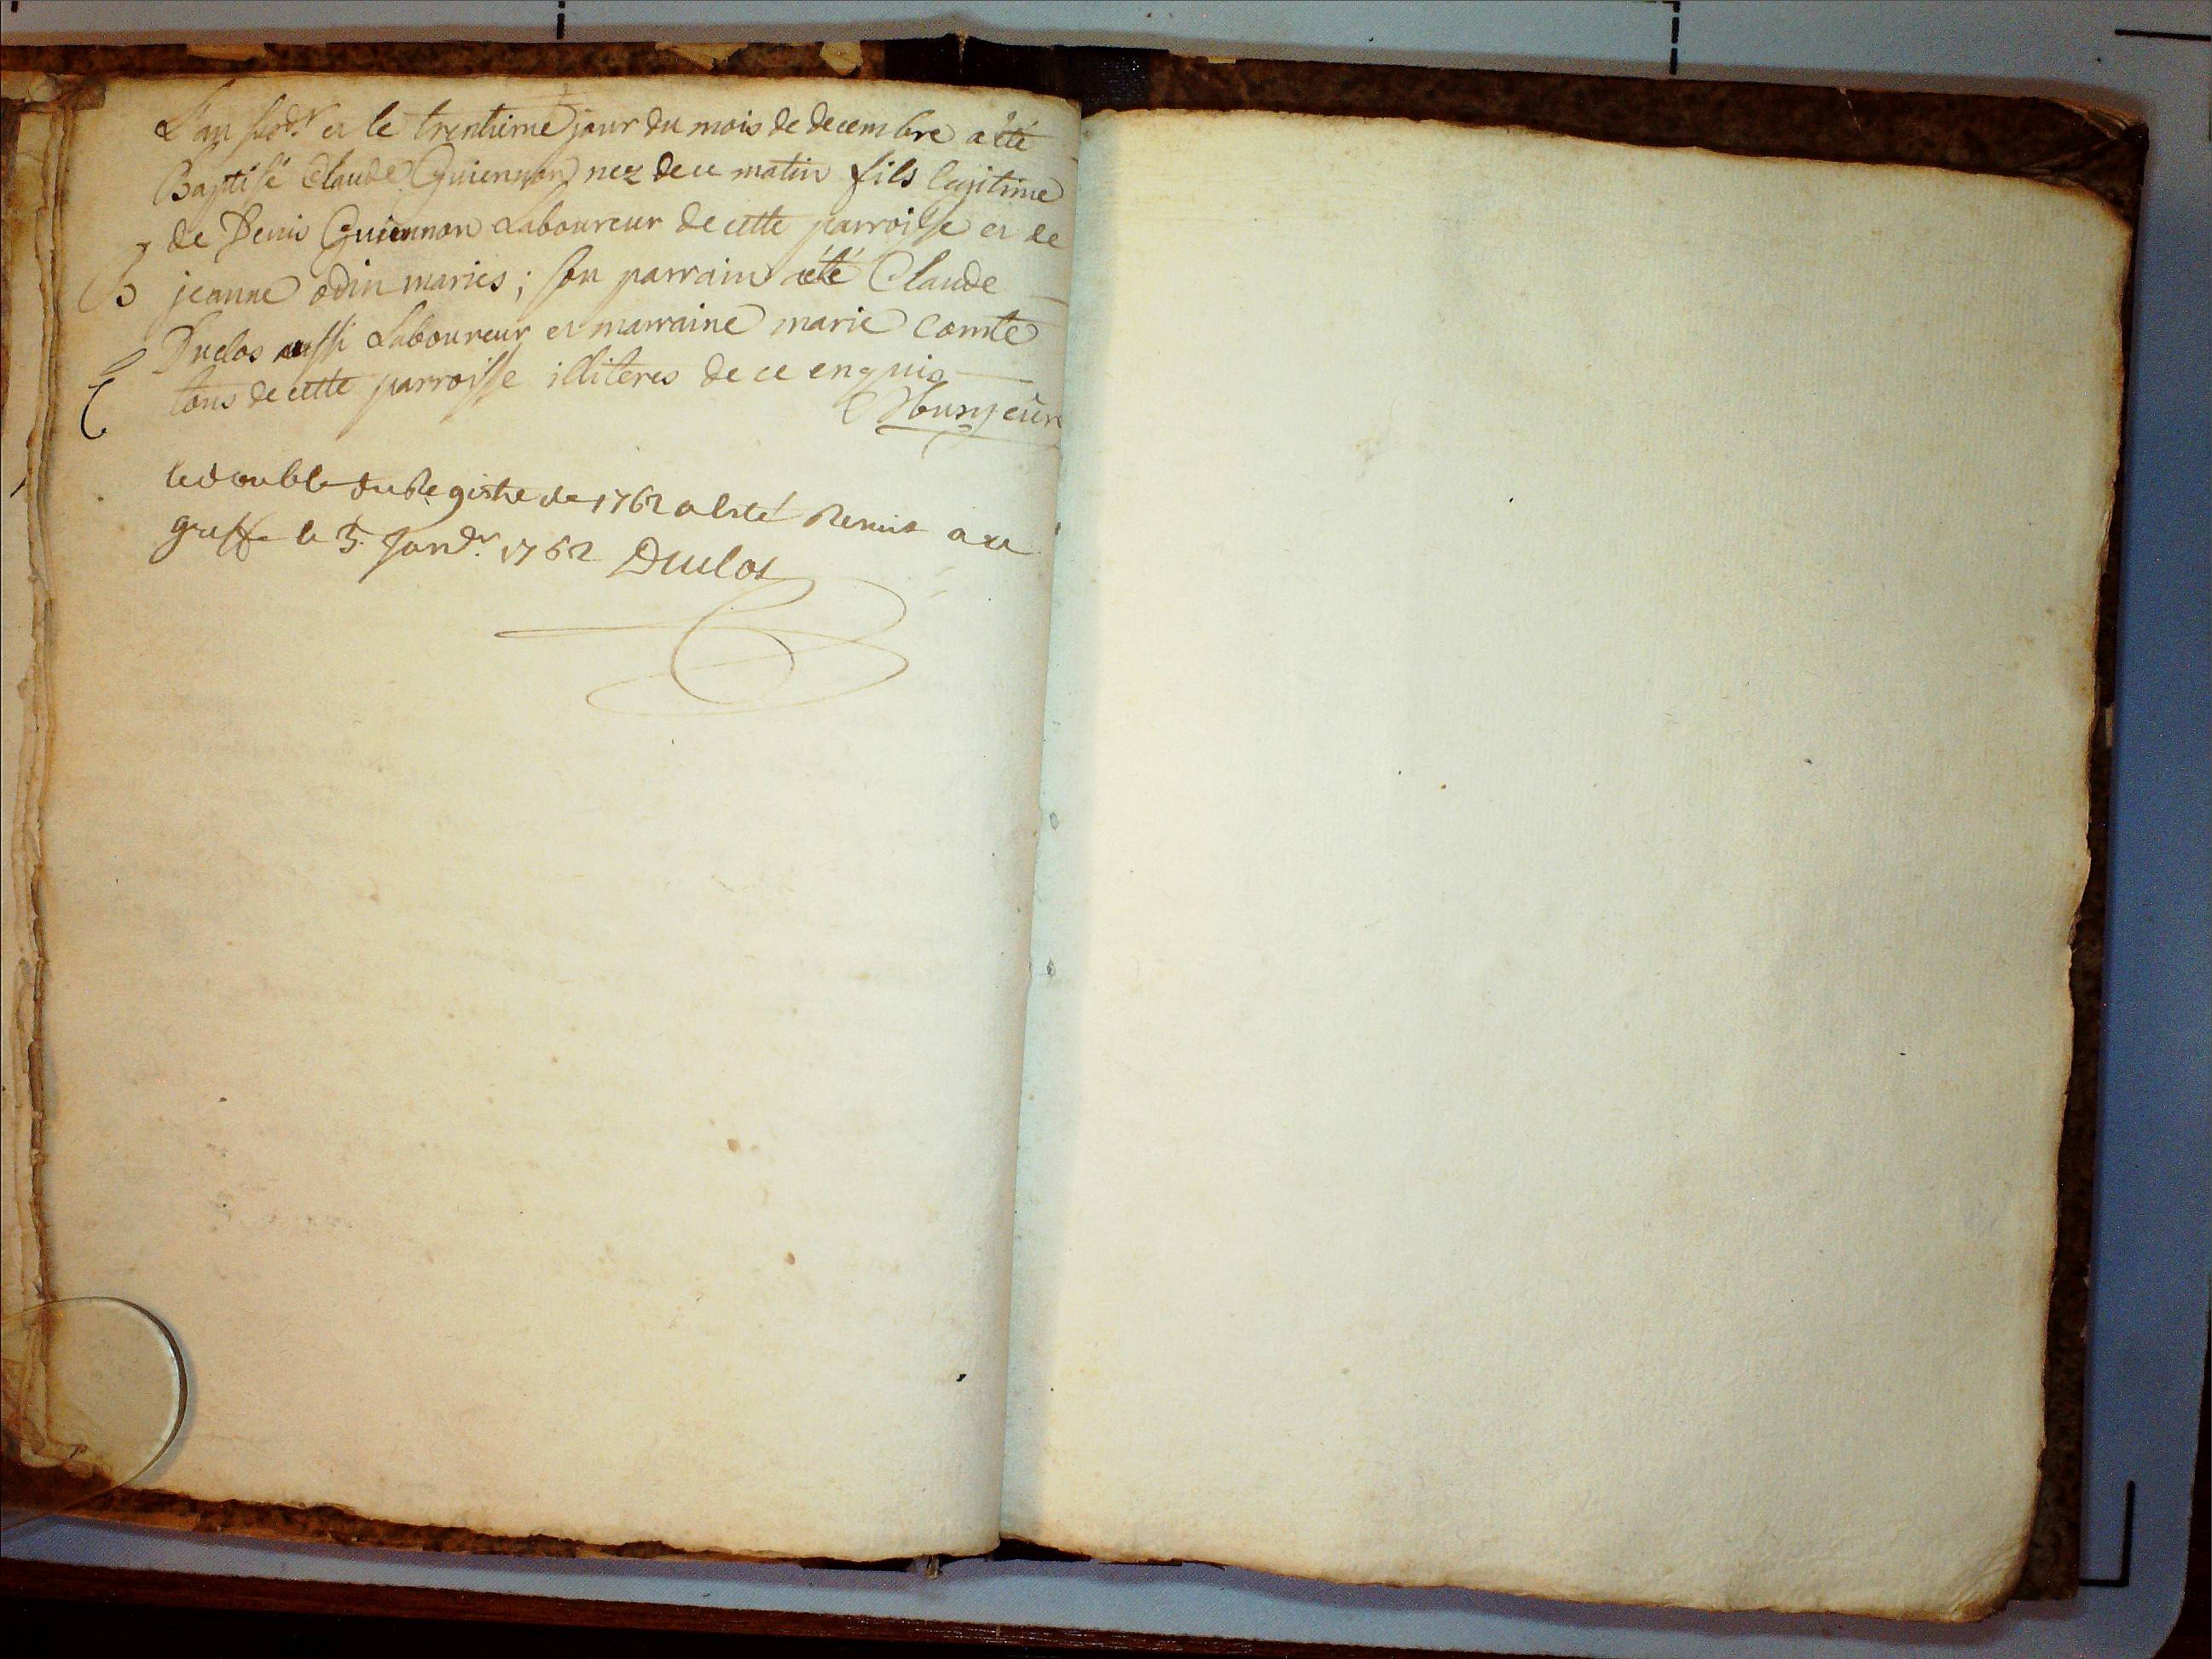 L'an susd.t et le trentieme jour du mois de decembre a été
Baptisé Claude Guiennon nez de ce matin fils legitime
de Denis Guiennon Laboureur de cette parroisse et de
B jeanne odin mariés ; son parrain a été Claude
Duclos aussi Laboureur et marraine marie Comte
tous de cette parroisse illiteres de ce enquis
curé
le double du Registre de 1762 a este Remis au
greffe le 3. Janv.r 1762 Duclos